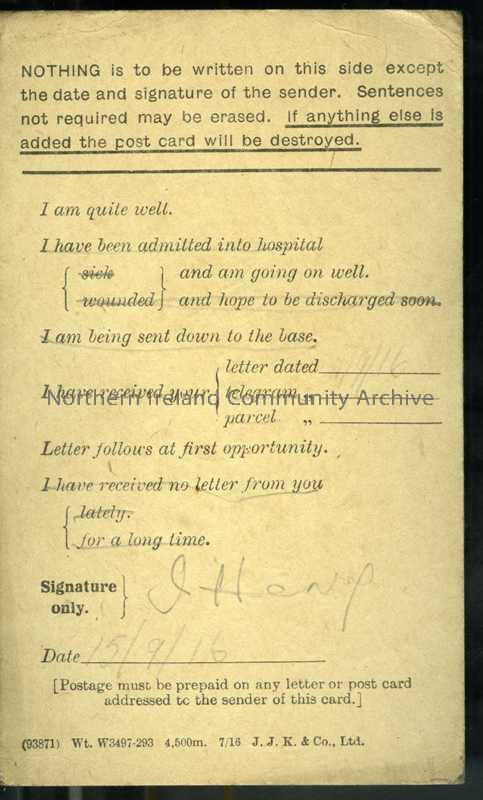 NOTHING is to be written on this side except
the date and signature of the sender. Sentences
not required may be erased. If anything else is
added the post card will be destroyed.
I am quite well.
I have been admitted into hospital
sick } and am going on well.
wounded } and hope to be discharged soon.
I am being sent down to the base.
letter dated /9/16
I have received your { telegram „
Northern Ireland Community Archive
parcel „
Letter follows at first opportunity.
I have received no letter from you
lately.
for a long time.
Signature
only. } J Henry
Date 15/9/16
[Postage must be prepaid on any letter or post card
addressed to the sender of this card.]
(93871) Wt. W3497-293 4,500m. 7/16 J. J. K. & Co., Ltd.